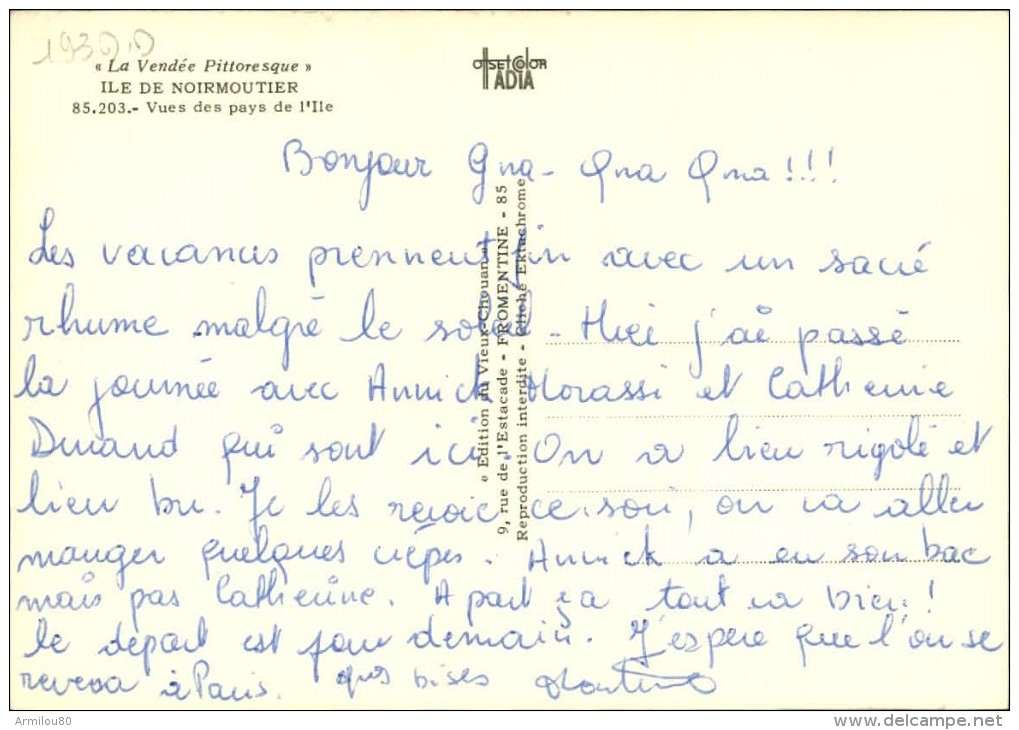 « La Vendée Pittoresque »
ILE DE NOIRMOUTIER
85.203.- Vues des pays de l'Ile
OFFSET COLOR
ADIA
Bonjour Gna - Gna Gna !!!
Les vacances prennent fin avec un sacré
rhume malgré le soleil - Hier j'ai passé
la journée avec Annick Morassi et Catherine
Durand qui sont ici. On a bien rigolé et
bien bu. Je les revoie ce soir, on va aller
manger quelques crêpes. Annick a eu son bac
mais pas Catherine. A part ça tout va bien !
Le départ est pour demain. J'espère que l'on se
revera à Paris. gros bises Martine
« Edition du Vieux-Chouan »
9, rue de l'Estacade - FROMENTINE - 85
Reproduction interdite - Cliché Ektachrome
Armilou80
http://www.delcampe.net